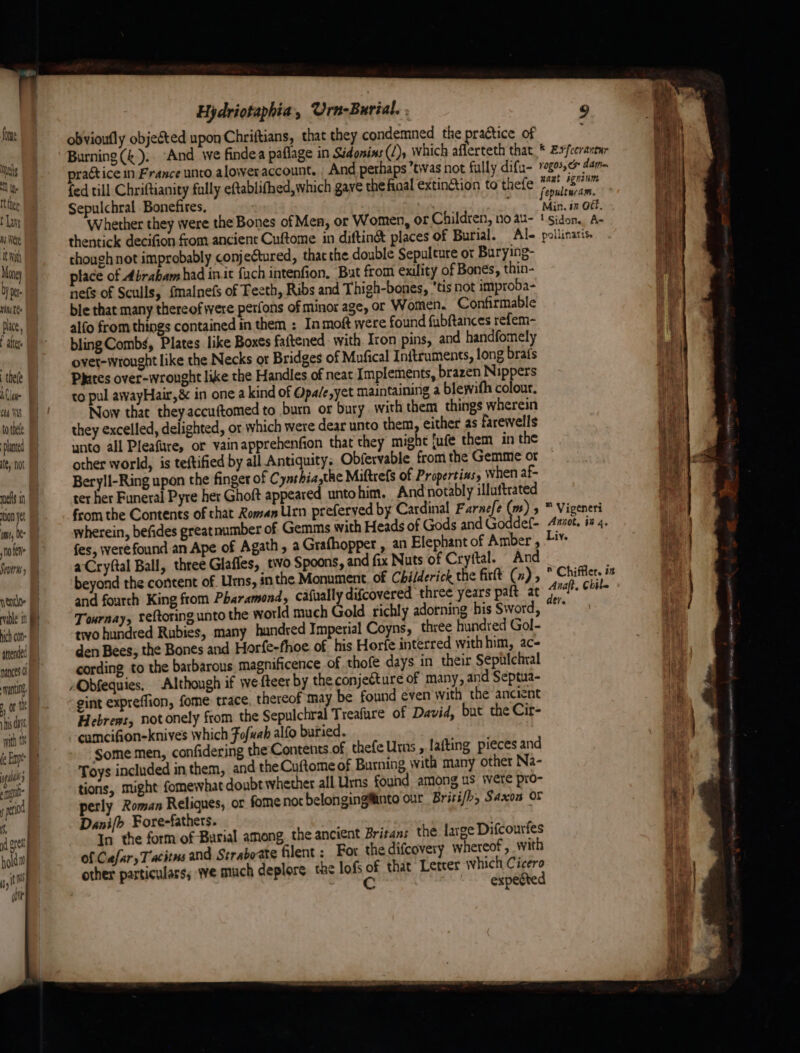 Hydriotaphia, Urn-Burial. 9
obviouſly objected upon Chriſtians, that they condemned the practice of
Burning (k). And we finde a paſſage in Sidonius (l), which aſſerteth that
practice in France unto a lower account. And perhaps 'twas not fully diſu-
ſed till Chriſtianity fully eſtabliſhed, which gave the final extinction to theſe
Sepulchral Bonefires.
Whether they were the Bones of Men, or Women, or Children, no au-
thentick deciſion from ancient Cuſtome in diſtinct places of Burial. Al-
though not improbably conjectured, that the double Sepulture or Burying-
place of Abraham had in it ſuch intenſion. But from exility of Bones, thin-
neſs of Sculls, ſmalneſs of Teeth, Ribs and Thigh-bones, 'tis not improba-
ble that many thereof were perſons of minor age, or Women. Confirmable
alſo from things contained in them : In moſt were found ſubſtances reſem-
bling Combs, Plates like Boxes faſtened with Iron pins, and handſomely
over-wrought like the Necks or Bridges of Muſical Inſtruments, long braſs
Plates over-wrought like the Handles of neat Implements, brazen Nippers
to pul away Hair, & in one a kind of Opale, yet maintaining a blewiſh colour.
Now that they accuſtomed to burn or bury with them things wherein
they excelled, delighted, or which were dear unto them, either as farewells
unto all Pleaſure, or vain apprehenſion that they might uſe them in the
other world, is teſtified by all Antiquity. Obſervable from the Gemme or
Beryll-Ring upon the finger of Cynthia, the Miſtreſs of Propertius, when af-
ter her Funeral Pyre her Ghoſt appeared unto him. And notably illuſtrated
from the Contents of that Roman Urn preſerved by Cardinal Farneſe (m),
wherein, beſides great number of Gemms with Heads of Gods and Goddeſ-
ſes, were found an Ape of Agath, a Graſhopper, an Elephant of Amber,
a Cryſtal Ball, three Glaſſes, two Spoons, and ſix Nuts of Cryſtal. And
beyond the content of Urns, in the Monument of Childerick the firſt (n),
and fourth King from Pharamond, caſually diſcovered three years paſt at
Tournay, reſtoring unto the world much Gold richly adorning his Sword,
two hundred Rubies, many hundred Imperial Coyns, three hundred Gol-
den Bees, the Bones and Horſe-ſhoe of his Horſe interred with him, ac-
cording to the barbarous magnificence of thoſe days in their Sepulchral
Obſequies. Although if we ſteer by the conjecture of many, and Septua-
gint expreſſion, ſome trace thereof may be found even with the ancient
Hebrews, not onely from the Sepulchral Treaſure of David, but the Cir-
cumciſion-knives which Joſuah alſo buried.
Some men, conſidering the Contents of theſe Urns, laſting pieces and
Toys included in them, and the Cuſtome of Burning with many other Na-
tions, might ſomewhat doubt whether all Urns found among us were pro-
perly Roman Reliques, or ſome not belonging unto our Britiſh, Saxon or
Daniſh Fore-fathers.
In the form of Burial among the ancient Britans the large Diſcourſes
of Cæſar, Tacitus and Strabo are ſilent : For the diſcovery whereof, with
other particulars, we much deplore the loſs of that Letter which Cicero
C expected
k Exſecrantur
rogos, & dam-
nant ignium
ſepulturam.
Min. in Oct.
l Sidon. A-
pollinaris.
m Vigeneri
Annot. in 4.
Liv.
n Chifflet. in
Anaſt. Chil-
der.